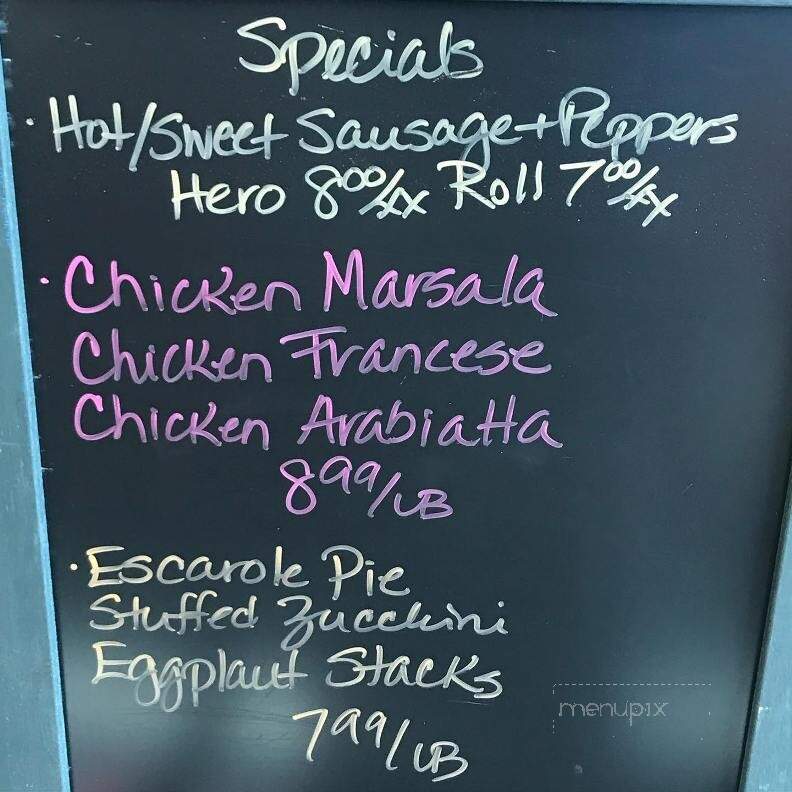 Specials
· Hot/Sweet Sausage + Peppers
Hero 8⁰⁰/ Roll 7⁰⁰/
· Chicken Marsala
Chicken Francese
Chicken Arabiatta
8⁹⁹/LB
· Escarole Pie
Stuffed Zucchini
Eggplant Stacks
7⁹⁹/LB
menupix